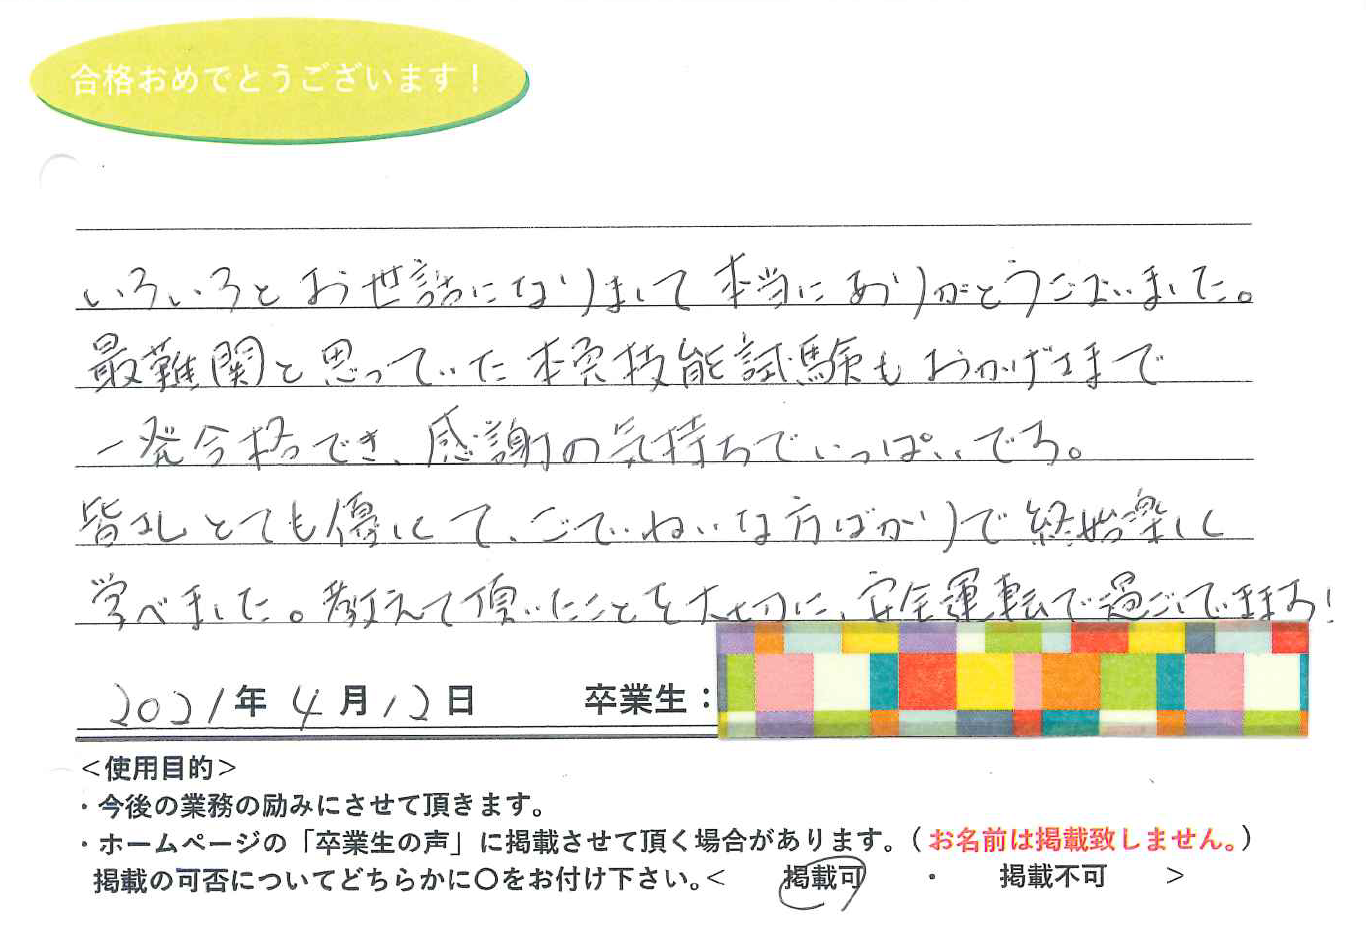 合格おめでとうございます！
いろいろとお世話になりまして本当にありがとうございました。
最難関と思っていた本免技能試験もおかげさまで
一発合格でき、感謝の気持ちでいっぱいです。
皆さんとても優しくて、ごていねいな方ばかりで終始楽しく
学べました。教えて頂いたことを大切に、安全運転で過ごしてきます！
2021年4月12日 卒業生：
＜使用目的＞
・今後の業務の励みにさせて頂きます。
・ホームページの「卒業生の声」に掲載させて頂く場合があります。（お名前は掲載致しません。）
掲載の可否についてどちらかに〇をお付け下さい。＜ 掲載可 ・ 掲載不可 ＞